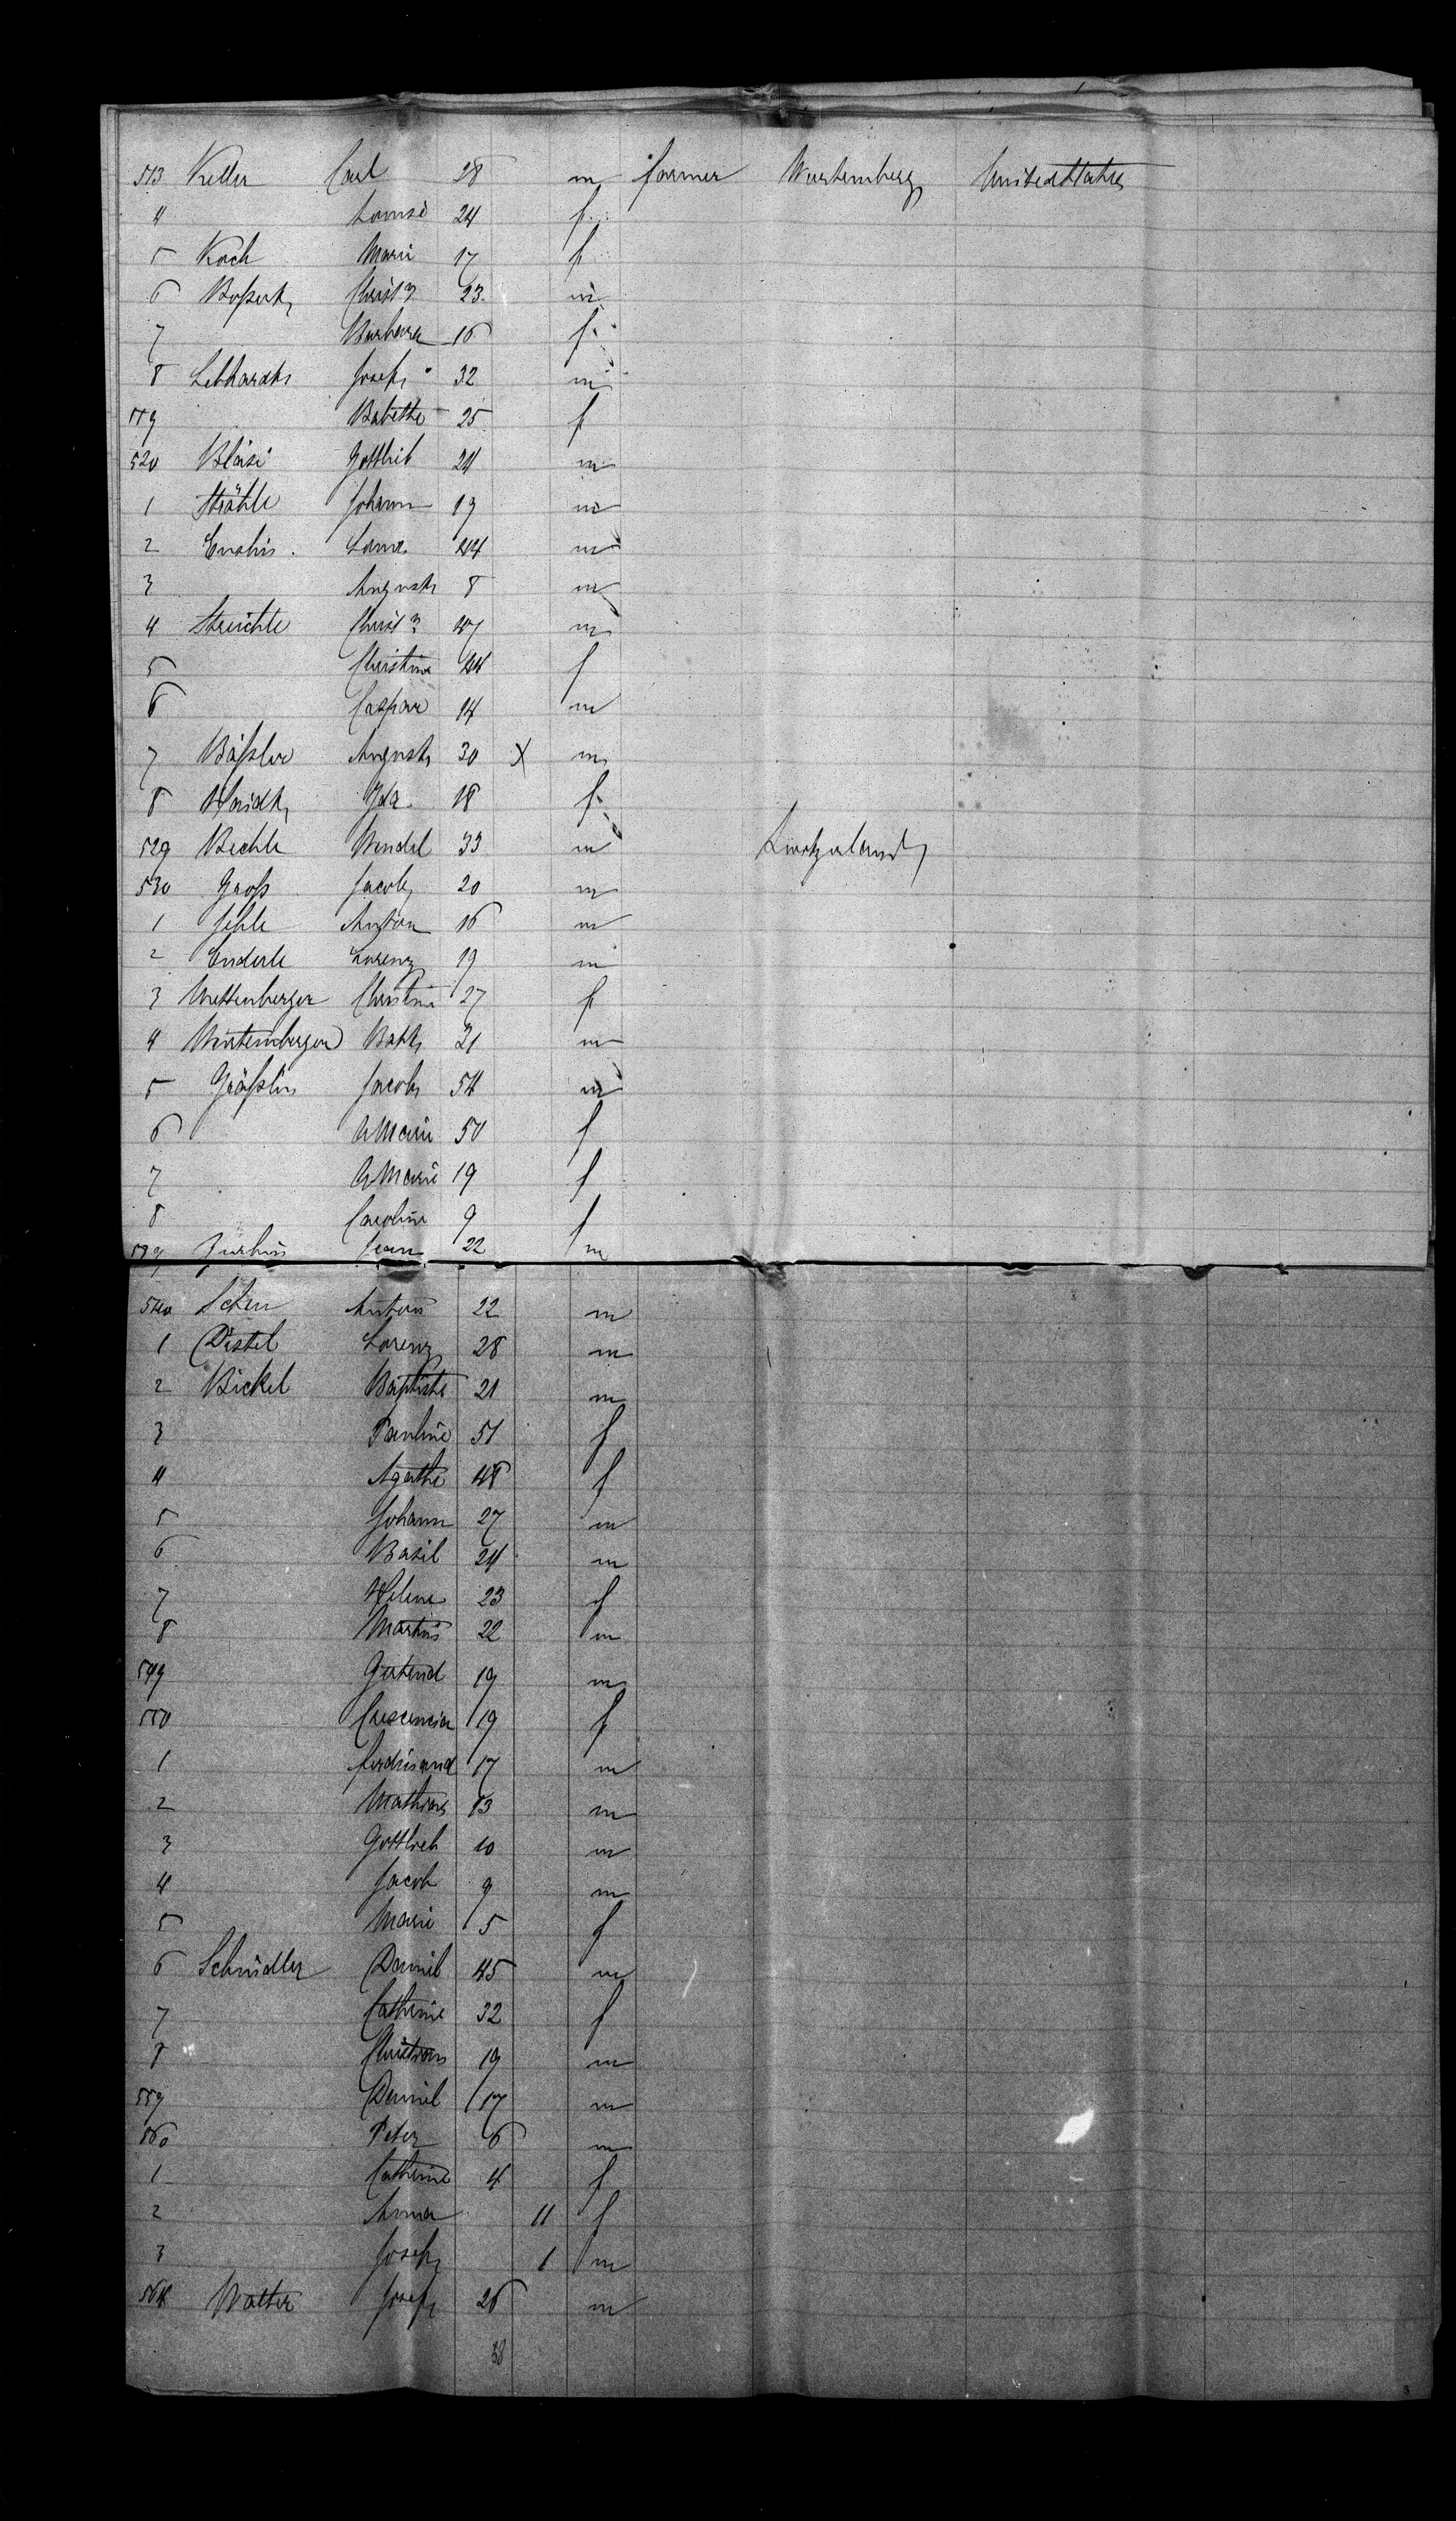 513 Keller Carl 28 m farmer Wurtemberg United States
4 Louise 24 f
5 Koch Marie 17 f
6 Boßert Christ 23 m
7 Barbara 16 f
8 Lebhardt Josef 32 m
519 Babette 25 f
520 Bläsi Gottlieb 24 m
1 Strähle Johann 19 m
2 44 m
3 August 8 m
4 Streichle Christ 47 m
5 Christine 44 f
6 Caspar 14 m
7 Bäßler August 30 X m
8 Haidt Ida 18 f
529 Bechle Wendel 33 m
530 Groß Jacob 20 m
1 Jehle Anton 16 m
2 Enderle Lorenz 19 m
3 Mettenberger Christine 27 f
4 Wirtemberger Bath 21 m
5 Gräßlin Jacob 54 m
6 AMarie 50 f
7 AMarie 19 f
8 Caroline 9 f
539 Jean 22 m
540 Anton 22 m
1 Distel Lorenz 28 m
2 Bickel Baptiste 21 m
3 Pauline 51 f
4 Agathe 48 f
5 Johann 27 m
6 Basil 24 m
7 Helene 23 f
8 Martin 22 m
549 19 m
550 Crescencia 19 f
1 Ferdinand 17 m
2 Mathias 13 m
3 Gottlieb 10 m
4 Jacob 9 m
5 Marie 5 f
6 Schindler Daniel 45 m
7 Catherine 32 f
8 Christian 19 m
559 Daniel 17 m
560 Peter 6 m
1 Catherine 4 f
2 Anna 11 f
3 Joseph 1 m
564 Walter Josef 26 m